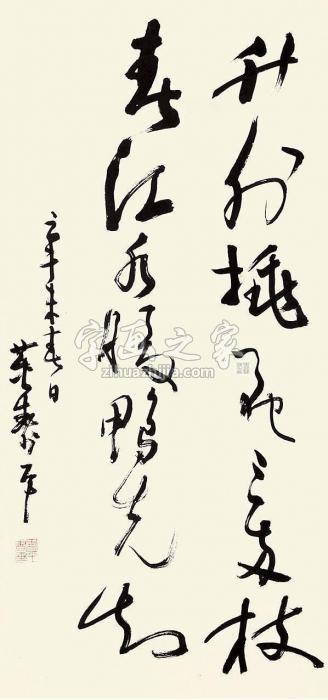 竹外桃花三兩枝
春江水暖鴨先知
辛未春日
董壽平
字画之家
www.zihuazhijia.com